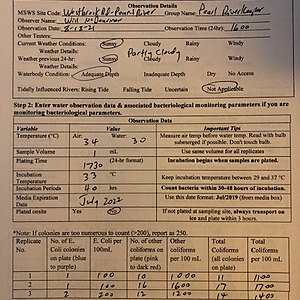 Observation Details
MSWS Site Code: Westbrook Rd-Pearl River Group Name: Pearl Riverkeeper
Observer Name: Will
Observation Date: 8-18-21 Observation Time (24hr): 1600
Other Testers:
Current Weather Conditions: Sunny Cloudy Rainy Windy
Weather Details: Partly Cloudy
Weather previous 24-hr: Sunny Cloudy Rainy Windy
Weather Details:
Waterbody Condition: Adequate Depth Inadequate Depth Dry No Access
Tidally Influenced Rivers: Rising Tide Falling Tide Uncertain Not Applicable
Step 2: Enter water observation data & associated bacteriological monitoring parameters if you are
monitoring bacteriological parameters.
Observation Data
Variable Value Important Tips
Temperature (°C) Air: 34 Water: 30 Measure air temp before water temp. Read with bulb
submerged if possible. Don't touch bulb.
Sample Volume 1 mL Use same volume for all replicates
Plating Time 1730 (24-hr format) Incubation begins when samples are plated.
Incubation Temperature 33 °C Keep incubation temperature between 29 and 37 °C
Incubation Periods 40 hrs Count bacteria within 30-48 hours of incubation.
Media Expiration Date July 2022 Use this date format: Jul/2019 (from media box)
Plated onsite Yes No If not plated at sampling site, always transport on
ice and plate within 3 hours.
*Note: If colonies are too numerous to count (>200), report as 250.
Replicate No. No. of E. Coli colonies on plate (blue to purple) E. Coli per 100mL No. of other coliforms on plate (pink to dark red) Other coliforms per 100 mL Total Coliforms (all colonies on plate) Total Coliforms per 100 mL
1 1 100 10 1000 11 1100
2 1 100 16 1600 17 1700
3 2 200 12 1200 14 1400